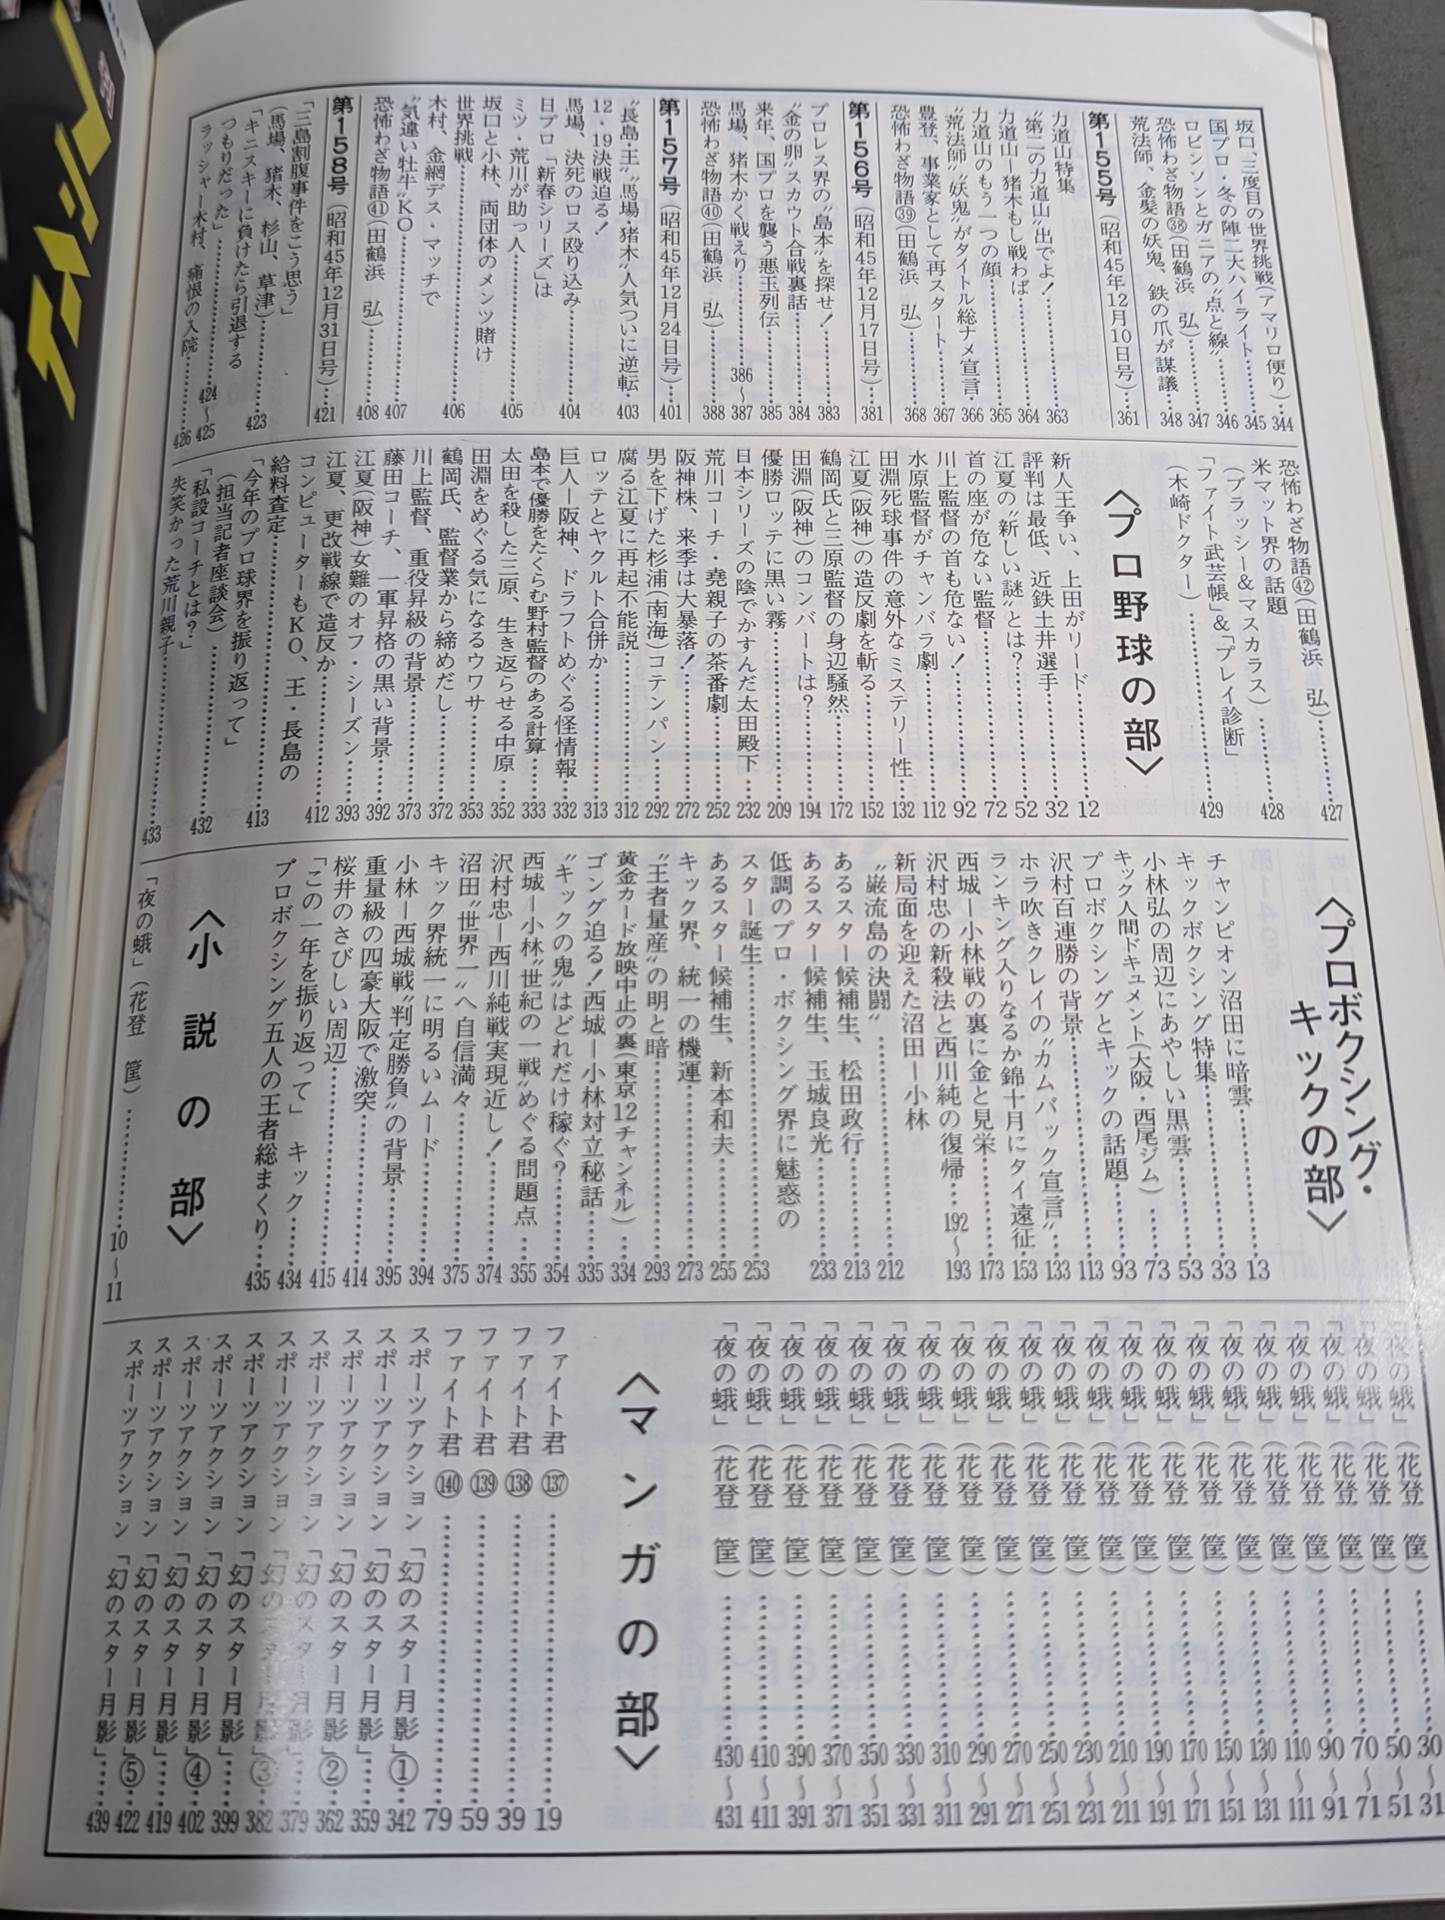 坂口、三度目の世界挑戦(アマリロ便り)…344
国プロ・冬の陣二大ハイライト…345
ロビンソンとガニアの〝点と線〟…346
恐怖わざ物語㊳(田鶴浜 弘)…347
荒法師、金髪の妖鬼、鉄の爪が謀議…348
第155号(昭和45年12月10日号)…361
力道山特集
〝第二の力道山〟出でよ!…363
力道山ー猪木もし戦わば…364
力道山のもう一つの顔…365
〝荒法師〟〝妖鬼〟がタイトル総ナメ宣言…366
豊登、事業家として再スタート…367
恐怖わざ物語㊴(田鶴浜 弘)…368
第156号(昭和45年12月17日号)…381
プロレス界の〝島本〟を探せ!…383
〝金の卵〟スカウト合戦裏話…384
来年、国プロを襲う悪玉列伝…385
馬場、猪木かく戦えり…386〜387
恐怖わざ物語㊵(田鶴浜 弘)…388
第157号(昭和45年12月24日号)…401
〝長島・王〟〝馬場・猪木〟人気ついに逆転…403
12・19決戦迫る!
馬場、決死のロス殴り込み…404
日プロ「新春シリーズ」は
ミツ・荒川が助っ人…405
坂口と小林、両団体のメンツ賭け
世界挑戦…406
木村、金網デス・マッチで
〝気違い牡牛〟KO…407
恐怖わざ物語㊶(田鶴浜 弘)…408
第158号(昭和45年12月31日号)…421
「三島割腹事件をこう思う」
(馬場、猪木、杉山、草津)…423
「キニスキーに負けたら引退する
つもりだった」…424〜425
ラッシャー木村、痛恨の入院…426
恐怖わざ物語㊷(田鶴浜 弘)…427
米マット界の話題
(ブラッシー&マスカラス)…428
「ファイト武芸帳」&「プレイ診断」
(木崎ドクター)…429
〈プロ野球の部〉
新人王争い、上田がリード…12
評判は最低、近鉄土井選手…32
江夏の〝新しい謎〟とは?…52
首の座が危ない監督…72
川上監督の首も危ない!…92
水原監督がチャンバラ劇…112
田淵死球事件の意外なミステリー性…132
江夏(阪神)の造反劇を斬る…152
鶴岡氏と三原監督の身辺騒然…172
田淵(阪神)のコンバートは?…194
優勝ロッテに黒い霧…209
日本シリーズの陰でかすんだ太田殿下…232
荒川コーチ・堯親子の茶番劇…252
阪神株、来季は大暴落!…272
男を下げた杉浦(南海)コテンパン…292
腐る江夏に再起不能説…312
ロッテとヤクルト合併か…313
巨人ー阪神、ドラフトめぐる怪情報…332
島本で優勝をたくらむ野村監督のある計算…333
太田を殺した三原、生き返らせる中原…352
田淵をめぐる気になるウワサ…353
鶴岡氏、監督業から締めだし…372
川上監督、重役昇級の背景…373
藤田コーチ、一軍昇格の黒い背景…392
江夏(阪神)女難のオフ・シーズン…393
江夏、更改戦線で造反か…412
コンピューターもKO、王・長島の
給料査定…413
「今年のプロ球界を振り返って」
(担当記者座談会)…432
「私設コーチとは?」
失笑かった荒川親子…433
〈プロボクシング・
キックの部〉
チャンピオン沼田に暗雲…13
キックボクシング特集…33
小林弘の周辺にあやしい黒雲…53
キック人間ドキュメント(大阪・西尾ジム)…73
プロボクシングとキックの話題…93
沢村百連勝の背景…113
ホラ吹きクレイの〝カムバック宣言〟…133
ランキング入りなるか錦十月にタイ遠征…153
西城ー小林戦の裏に金と見栄…173
沢村忠の新殺法と西川純の復帰…192〜193
新局面を迎えた沼田ー小林
〝巌流島の決闘〟…212
あるスター候補生、松田政行…213
あるスター候補生、玉城良光…233
低調のプロ・ボクシング界に魅惑の
スター誕生…253
あるスター候補生、新本和夫…255
キック界、統一の機運…273
〝王者量産〟の明と暗…293
黄金カード放映中止の裏(東京12チャンネル)…334
ゴング迫る!西城ー小林対立秘話…335
〝キックの鬼〟はどれだけ稼ぐ?…354
西城ー小林〝世紀の一戦〟めぐる問題点…355
沢村忠ー西川純戦実現近し!…374
沼田〝世界一〟へ自信満々…375
キック界統一に明るいムード…394
小林ー西城戦〝判定勝負〟の背景…395
重量級の四豪大阪で激突…414
桜井のさびしい周辺…415
「この一年を振り返って」 キック…434
プロボクシング五人の王者総まくり…435
〈小説の部〉
「夜の蛾」(花登 筐)…10〜11
「夜の蛾」(花登 筐)…30〜31
「夜の蛾」(花登 筐)…50〜51
「夜の蛾」(花登 筐)…70〜71
「夜の蛾」(花登 筐)…90〜91
「夜の蛾」(花登 筐)…110〜111
「夜の蛾」(花登 筐)…130〜131
「夜の蛾」(花登 筐)…150〜151
「夜の蛾」(花登 筐)…170〜171
「夜の蛾」(花登 筐)…190〜191
「夜の蛾」(花登 筐)…210〜211
「夜の蛾」(花登 筐)…230〜231
「夜の蛾」(花登 筐)…250〜251
「夜の蛾」(花登 筐)…270〜271
「夜の蛾」(花登 筐)…290〜291
「夜の蛾」(花登 筐)…310〜311
「夜の蛾」(花登 筐)…330〜331
「夜の蛾」(花登 筐)…350〜351
「夜の蛾」(花登 筐)…370〜371
「夜の蛾」(花登 筐)…390〜391
「夜の蛾」(花登 筐)…410〜411
「夜の蛾」(花登 筐)…430〜431
〈マンガの部〉
ファイト君 (137)…19
ファイト君 (138)…39
ファイト君 (139)…59
ファイト君 (140)…79
スポーツアクション「幻のスター月影」①…342
スポーツアクション「幻のスター月影」…359
スポーツアクション「幻のスター月影」②…362
スポーツアクション「幻のスター月影」…379
スポーツアクション「幻のスター月影」③…382
スポーツアクション「幻のスター月影」…399
スポーツアクション「幻のスター月影」④…402
スポーツアクション「幻のスター月影」…419
スポーツアクション「幻のスター月影」⑤…422
スポーツアクション「幻のスター月影」…439